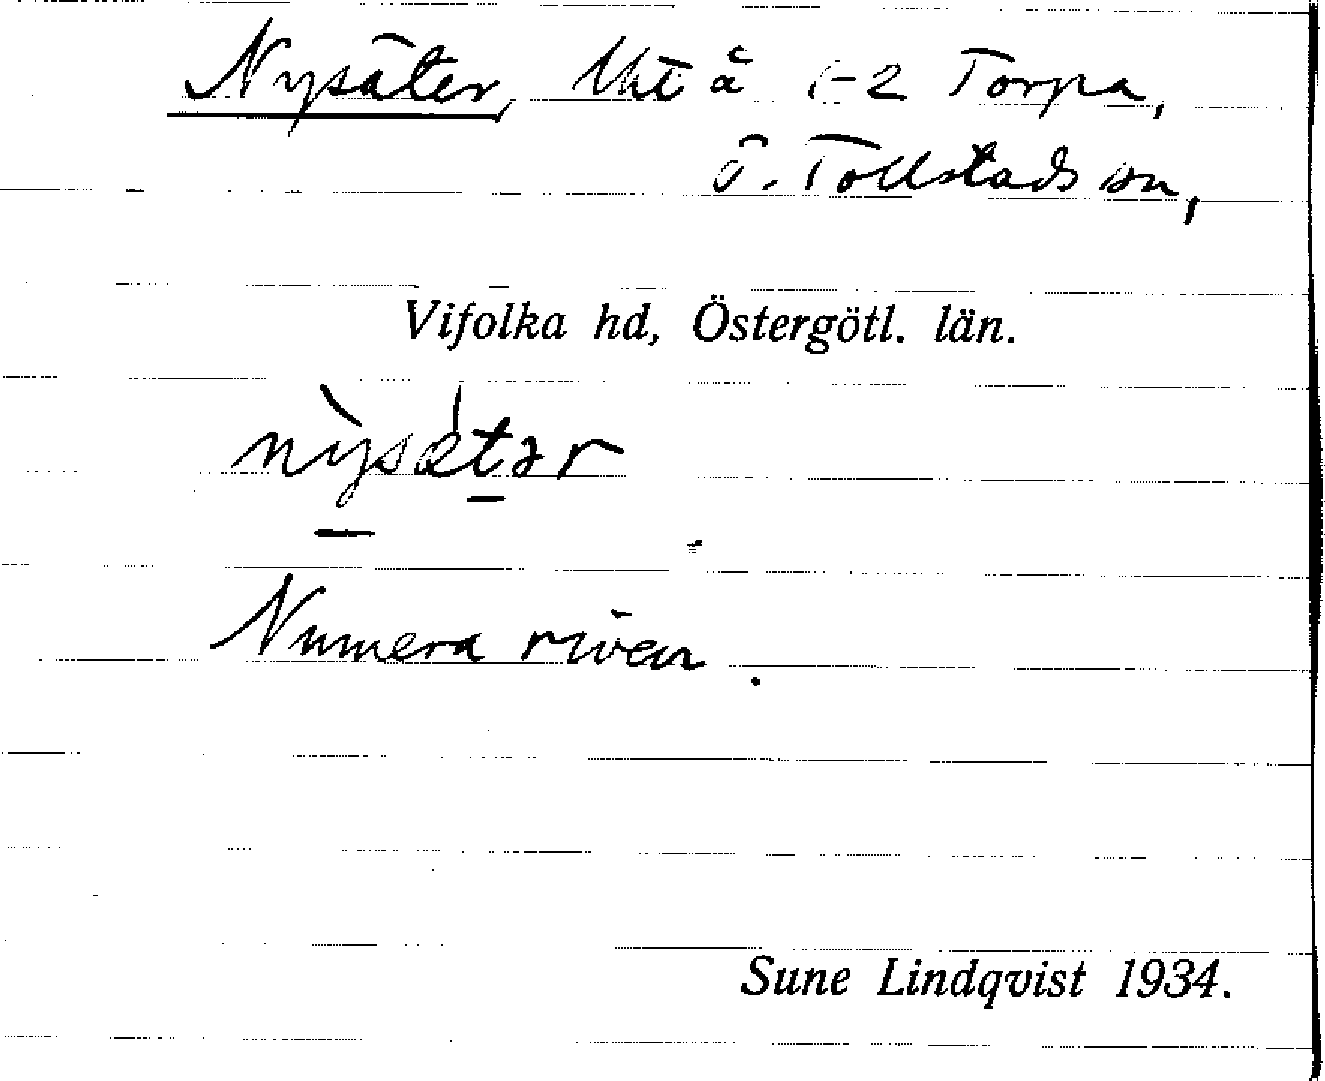 Nysäter, lht å 1-2 Torpa,
Ö. Tollstads sn,
Vifolka hd, Östergötl. län.
nỳ̠sǽt̠ər
Numera riven.
Sune Lindqvist 1934.